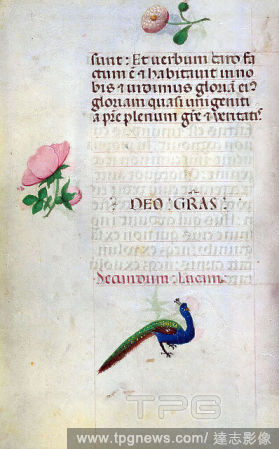 sunt: Et verbum caro fa
ctum ē & habitavit in no
bis & vidimus gloriā eiꝰ
gloriam quasi unigeniti
a pr̄e plenum gr̄e & veritatꝭ
DEO GRAS:
Secundum: Lucam:
TPG
www.tpgnews.com / 達志影像